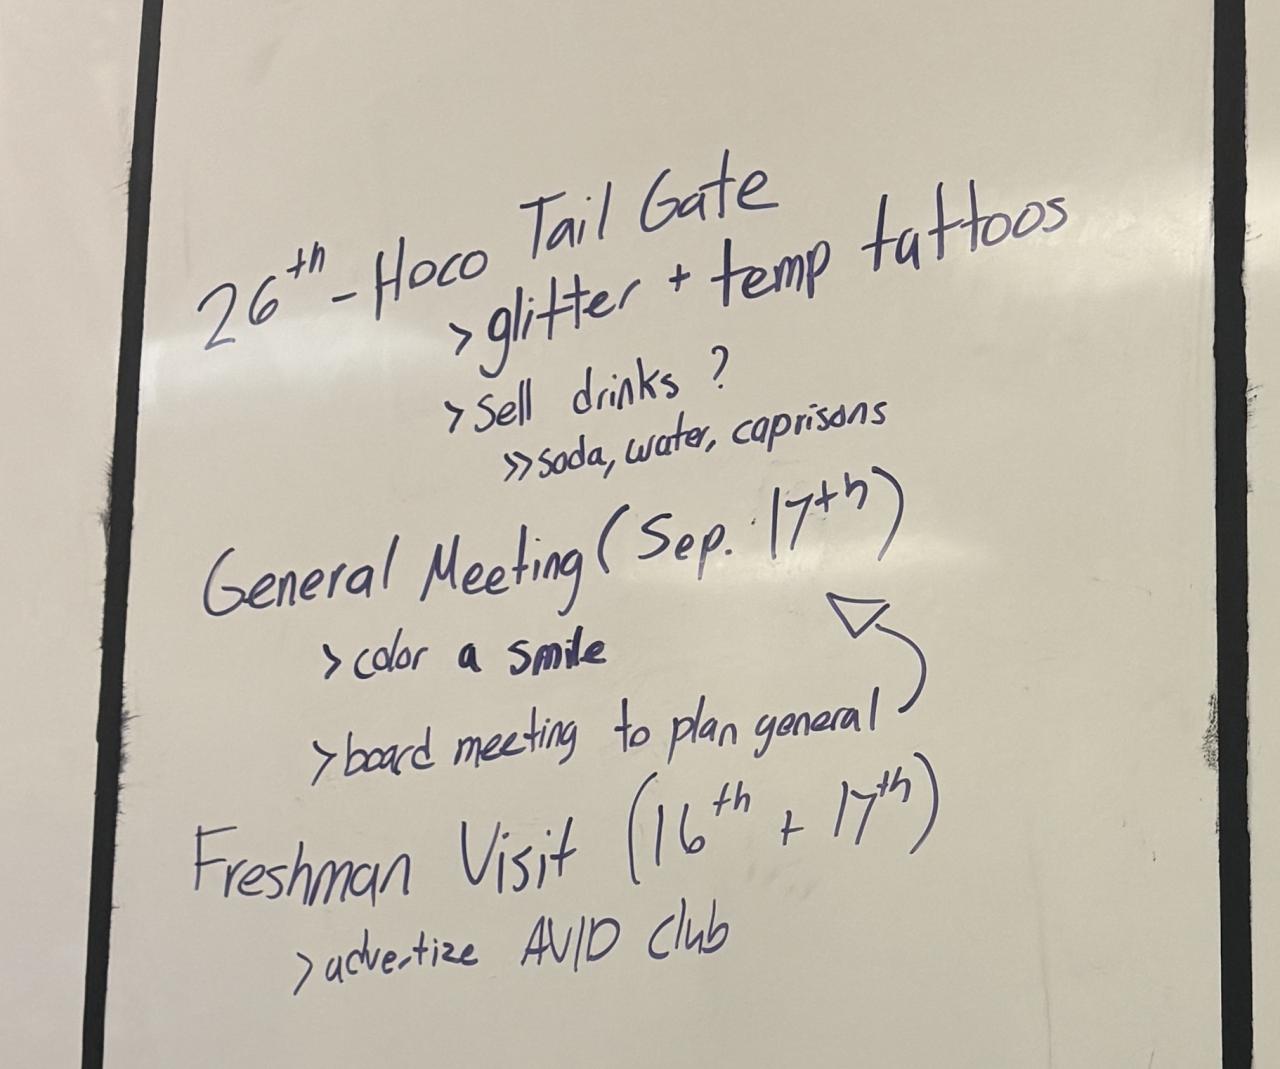 26th - Hoco Tail Gate
> glitter + temp tattoos
> Sell drinks ?
>> soda, water, caprisons
General Meeting (Sep. 17th)
> color a smile
> board meeting to plan general
Freshman Visit (16th + 17th)
> advertize AVID Club